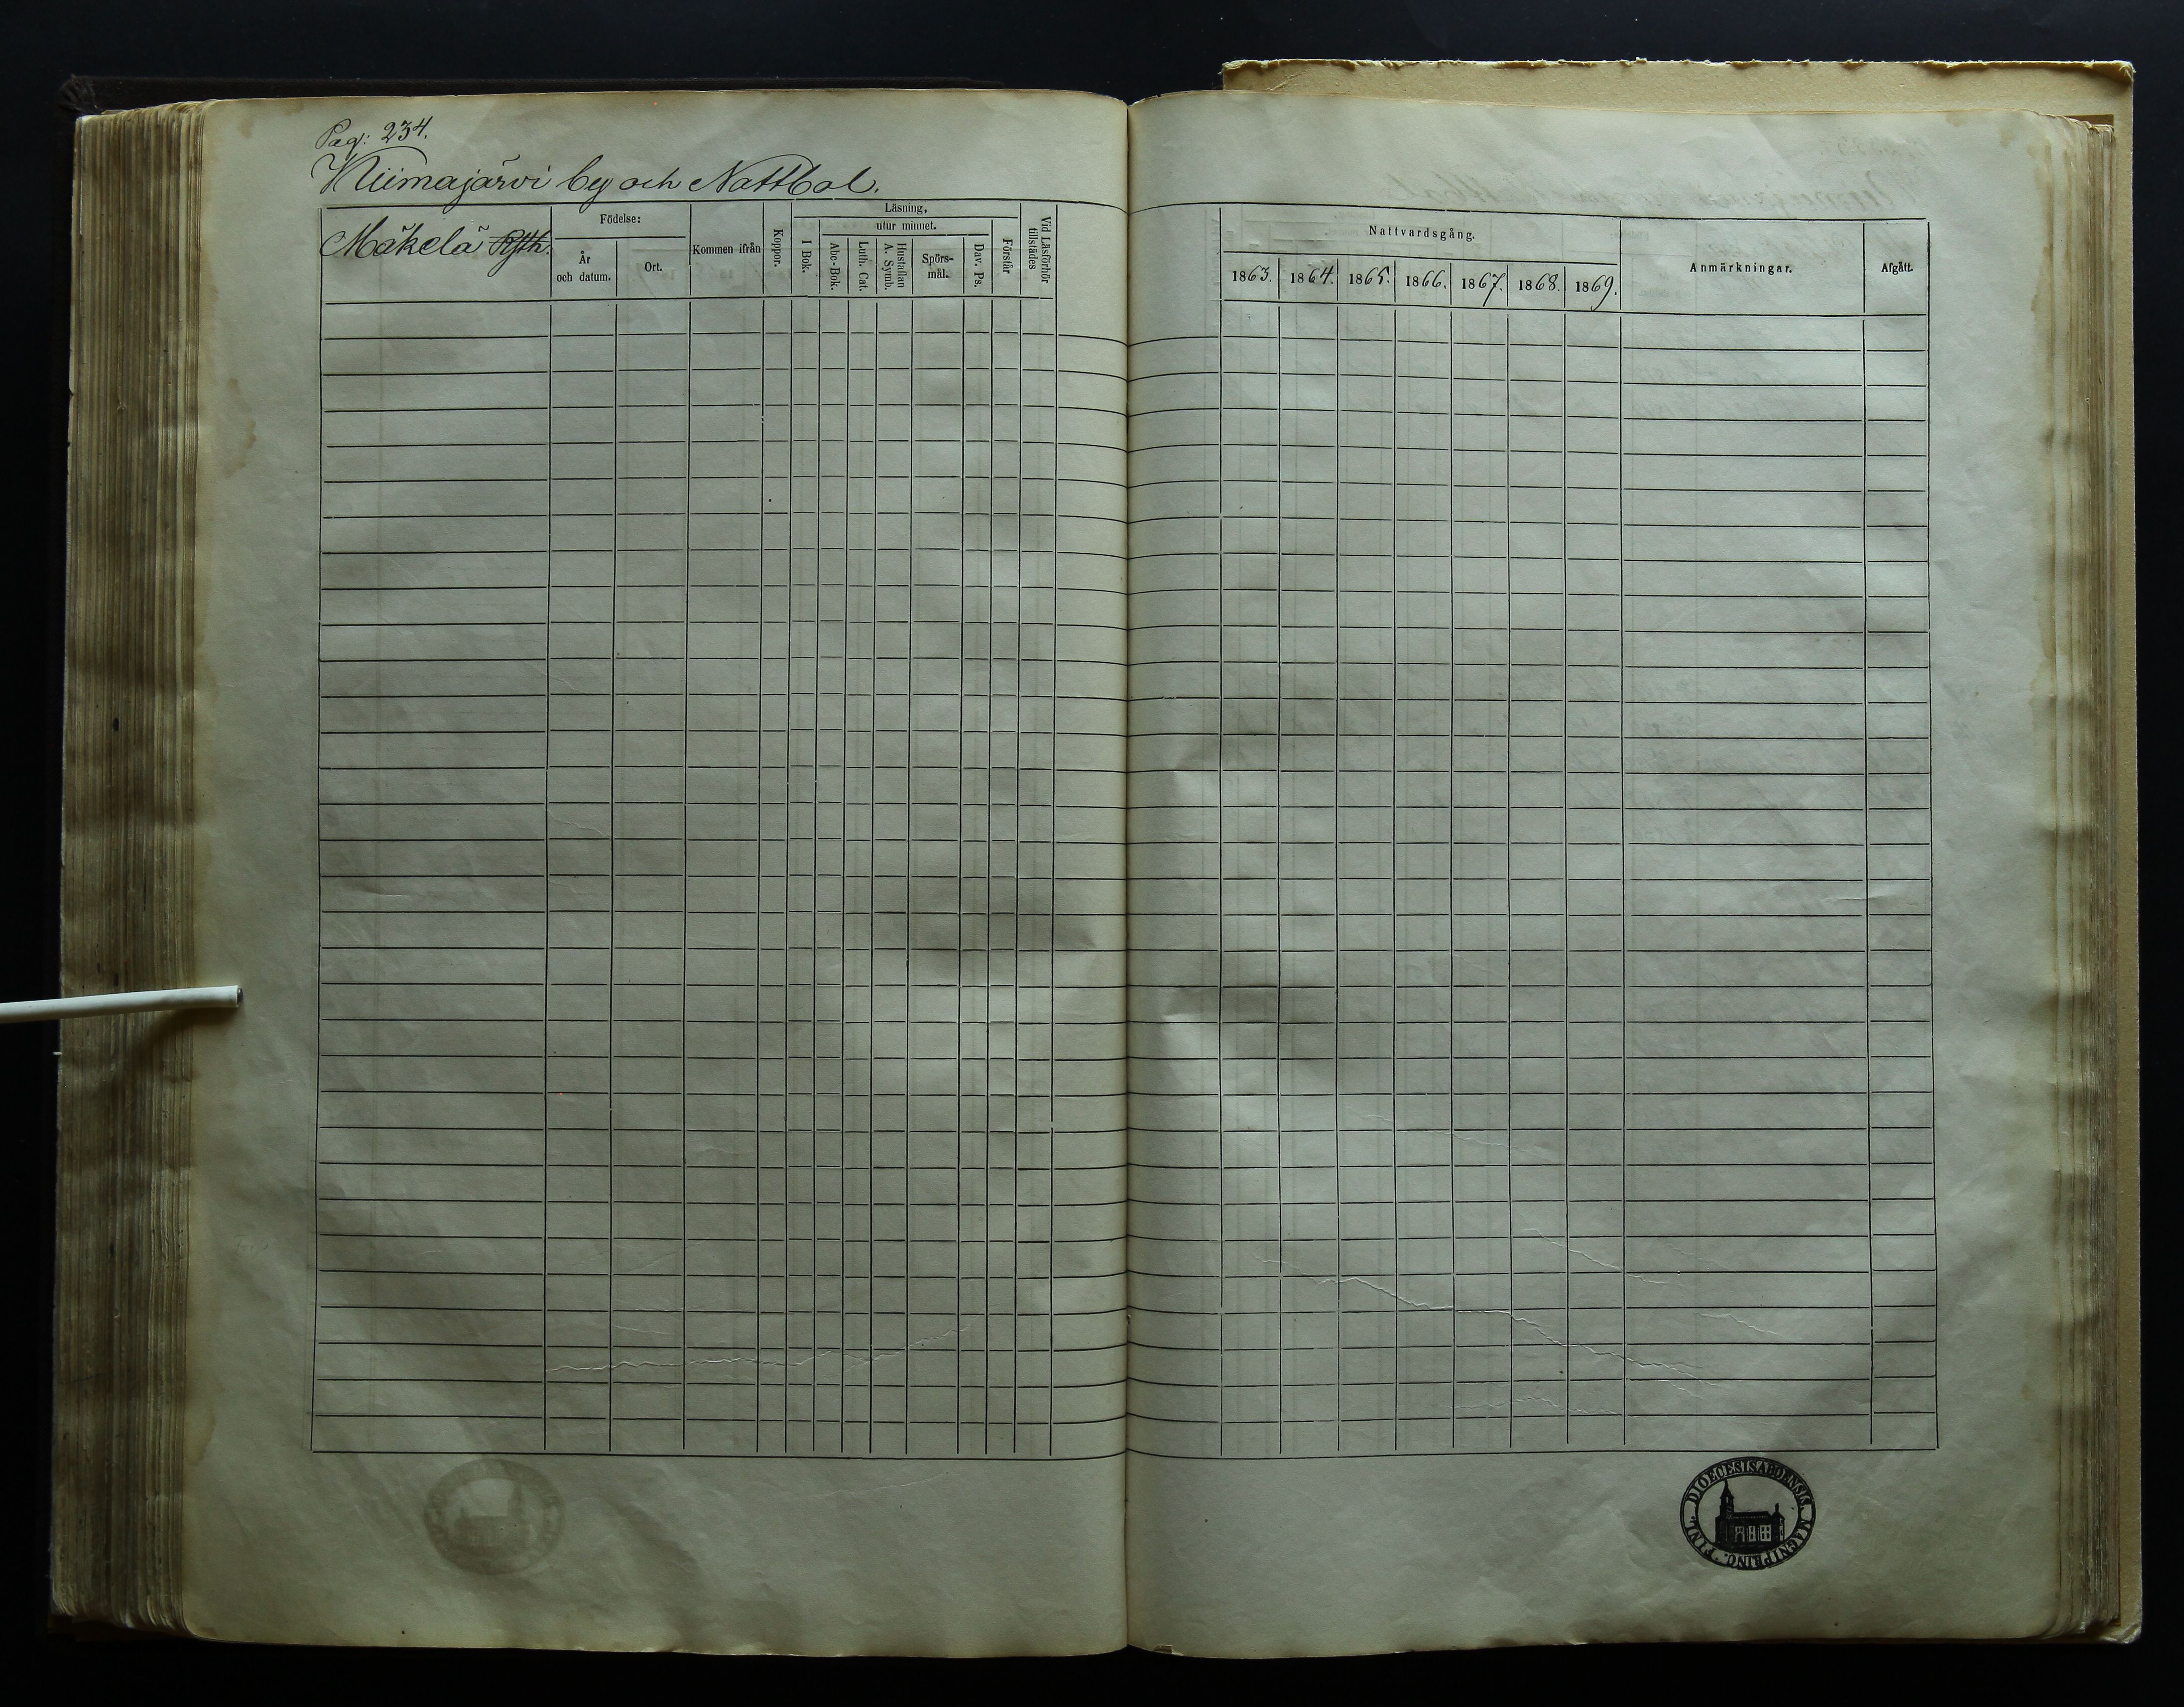 Pag: 234.
Kiimajärvi by och Nattbol.
Mäkelä Rsth.
Födelse:
År
och datum.
Ort.
Kommen ifrån
Koppor.
Läsning,
utur minnet.
I Bok.
Abc-Bok.
Luth. Cat.
Hustaflan
A. Symb.
Spörs-
mål.
Dav. Ps.
Förstår
Vid Läsförhör
tillstädes
Nattvardsgång.
1863. 1864. 1865. 1866. 1867. 1868. 1869.
Anmärkningar.
Afgått.
DIOECESIS ABOENSIS. MAGNI PRINC. FINL.